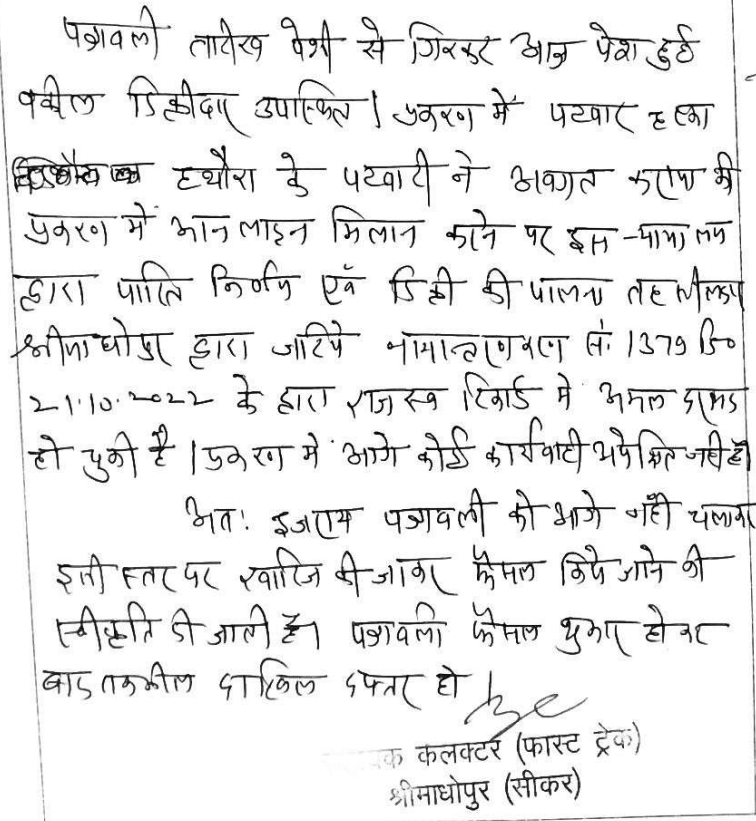 पत्रावली तारीख पेशी से गिरकर आज पेश हुई
वकील डिक्रीदार उपस्थित । प्रकरण में पटवार हल्का
हथौरा के पटवारी ने अवगत कराया की
प्रकरण में आनलाइन मिलान करने पर इस न्यायालय
द्वारा पारित निर्णय एवं डिक्री की पालना तहसीलदार
श्रीमाधोपुर द्वारा जरिये नामान्तरणकरण सं. 1379 दि०
21.10.2022 के द्वारा राजस्व रिकार्ड में अमल दरामद
हो चुकी है । प्रकरण में आगे कोई कार्यवाही अपेक्षित नही है।
अतः इजराय पत्रावली को आगे नहीं चलाकर
इसी स्तर पर खारिज की जाकर फैसल किये जाने की
स्वीकृति दी जाती है। पत्रावली फैसल शुमार होकर
बाद तकमील दाखिल दफ्तर हो
क कलक्टर (फास्ट ट्रेक)
श्रीमाधोपुर (सीकर)